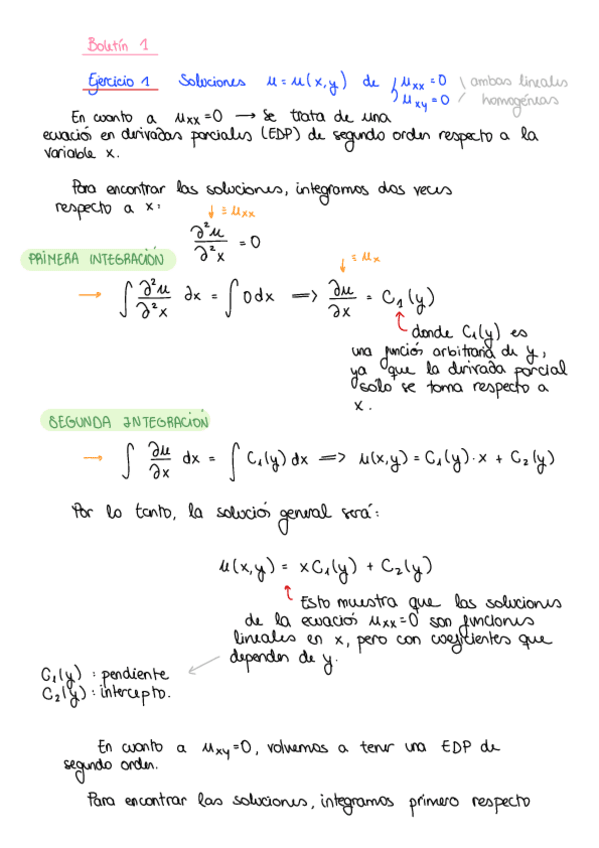 Boletín 1
Ejercicio 1 Soluciones u = u(x,y) de { uxx = 0 \ ambas lineales
uxy = 0 / homogéneas
En cuanto a uxx = 0 → se trata de una
ecuación en derivadas parciales (EDP) de segundo orden respecto a la
variable x.
Para encontrar las soluciones, integramos dos veces
respecto a x:
↓ ≡ uxx
∂²u/∂²x = 0
PRIMERA INTEGRACIÓN
↓ ≡ ux
→ ∫ ∂²u/∂²x ∂x = ∫ 0 dx ⟹ ∂u/∂x = C₁(y)
donde C₁(y) es
una función arbitraria de y,
ya que la derivada parcial
solo se toma respecto a
x.
SEGUNDA INTEGRACIÓN
→ ∫ ∂u/∂x dx = ∫ C₁(y) dx ⟹ u(x,y) = C₁(y)·x + C₂(y)
Por lo tanto, la solución general será:
u(x,y) = xC₁(y) + C₂(y)
Esto muestra que las soluciones
de la ecuación uxx = 0 son funciones
lineales en x, pero con coeficientes que
dependen de y.
C₁(y) : pendiente
C₂(y) : intercepto.
En cuanto a uxy = 0, volvemos a tener una EDP de
segundo orden.
Para encontrar las soluciones, integramos primero respecto